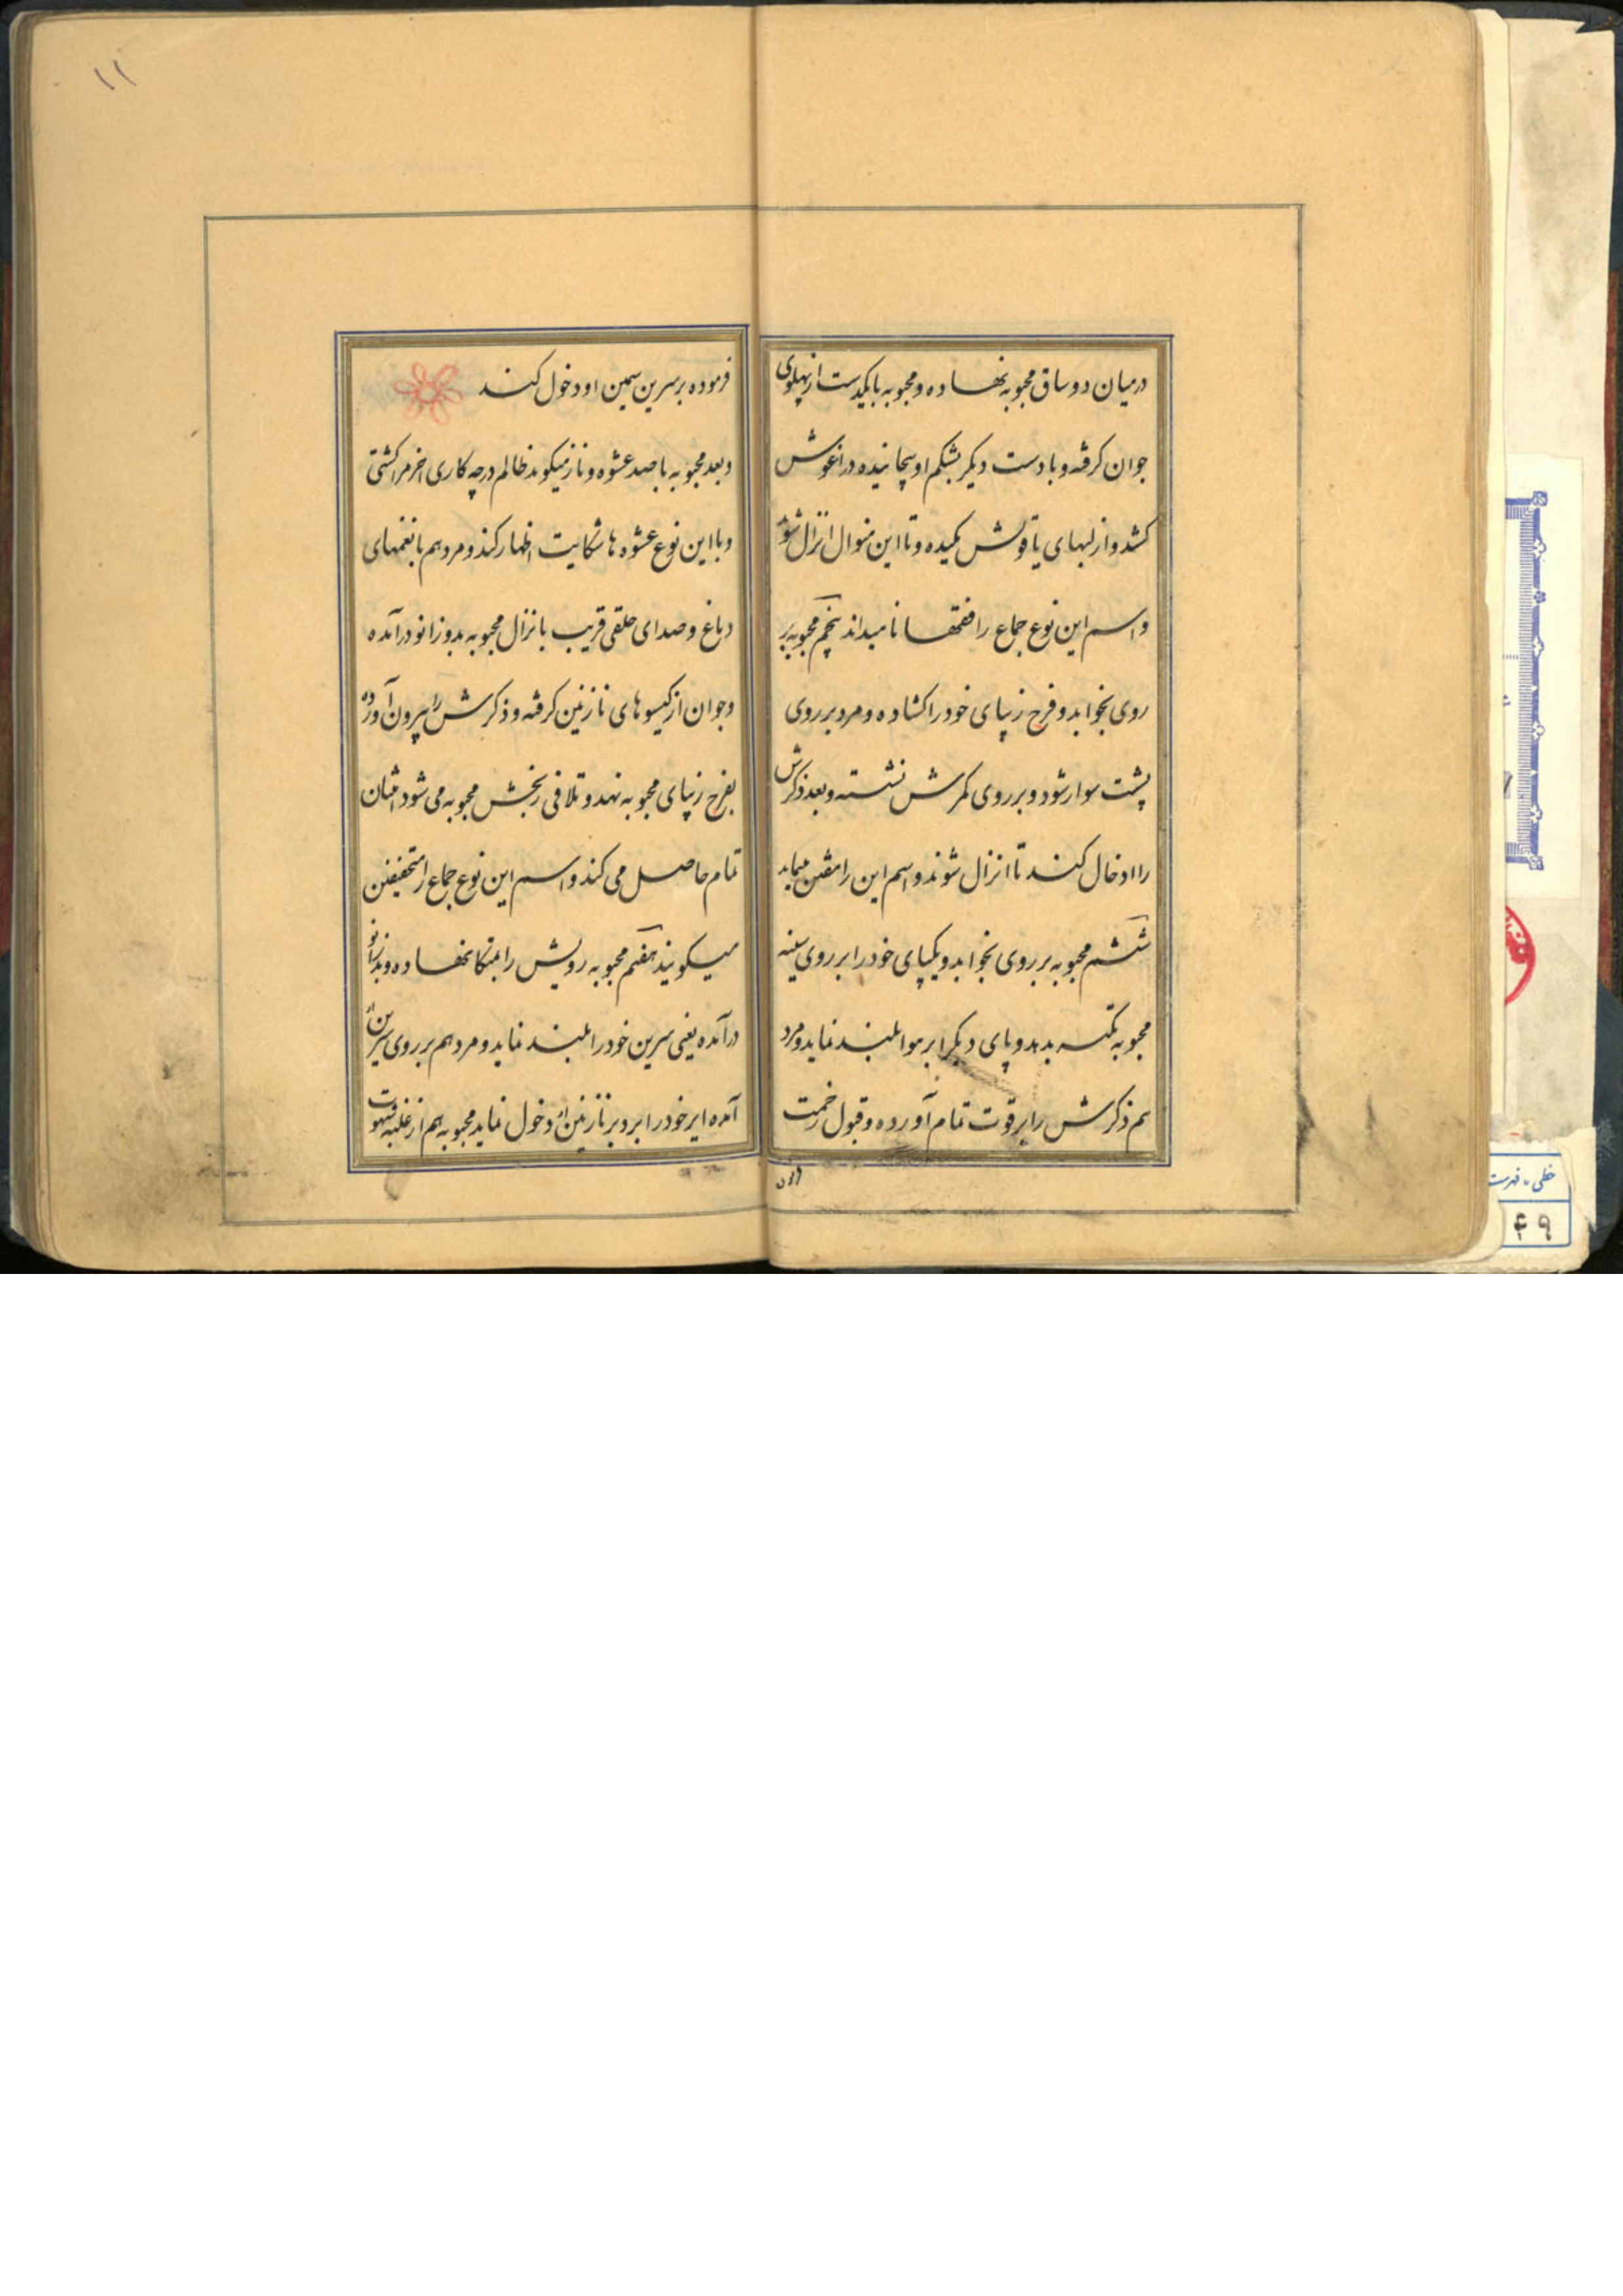 درمیان دو ساق محبوبه نهاده و محبوبه با یکدست از پهلوی
جوان گرفته و با دست دیگر بشکم او پیچانیده در اغوش
کشد و از لبهای یاقوتش مکیده و تا این منوال انزال شود
و اسم این نوع جماع را نامیده‌اند پنجم محبوبه بر
روی بخوابد و فرج زیبای خود را کشاده و مرد بر روی
پشت سوار شود و بر روی کمرش نشسته و بعد ذکرش
را ادخال کند تا انزال شوند و اسم این را
ششم محبوبه بر روی بخوابد و یکپای خود را بر روی سینه
محبوبه تکیه بدهد و پای دیگر را بر هوا بلند نماید و مرد
هم ذکرش را بر قوت تمام آورده و قبول زحمت
فرموده بر سرین سیمین او دخول کند
و بعد محبوبه با صد عشوه و ناز میکوید ظالم در چه کاری اخر مرا کشتی
و با این نوع عشوه ها شکایت اظهار کند و مرد هم با نغمهای
دماغ و صدای حلقی قریب با نزال محبوبه بدو زانو درآمده
و جوان از کیسوهای نازنین گرفته و ذکرش را بیرون آورده
بفرج زیبای محبوبه نهد و تلافی رنجش محبوبه می شود
تمام حاصل می کند و اسم این نوع جماع را
میکویند هفتم محبوبه رویش را بمتکا نهاده و بدو زانو
درآمده یعنی سرین خود را بلند نماید و مرد هم بر روی سرین
آمده ایر خود را بر نازنین دخول نماید محبوبه هم از غلبه شهوت
۱۱
خطی - فهرست
۴۹